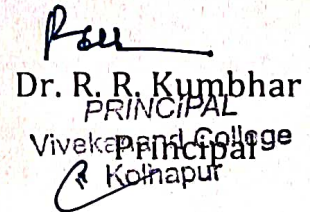 Dr. R. R. Kumbhar
PRINCIPAL
Vivekanand College
Principal
Kolhapur